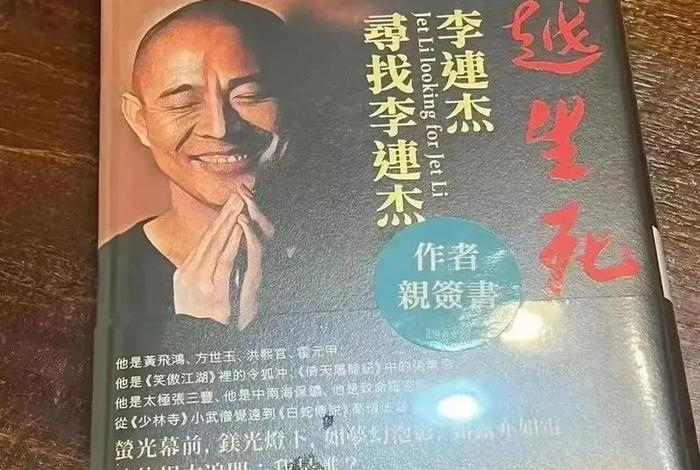 越生死
李連杰
Jet Li looking for Jet Li
尋找李連杰
作者
親簽書
他是黃飛鴻、方世玉、洪熙官、霍元甲,
他是《笑傲江湖》裡的令狐沖、《倚天屠龍記》中的張無忌
他是太極張三豐、他是中南海保鑣、他是致命羅密
從《少林寺》小武僧覺遠到《白蛇傳說》高僧法海
螢光幕前,鎂光燈下,如夢幻泡影,如露亦如電